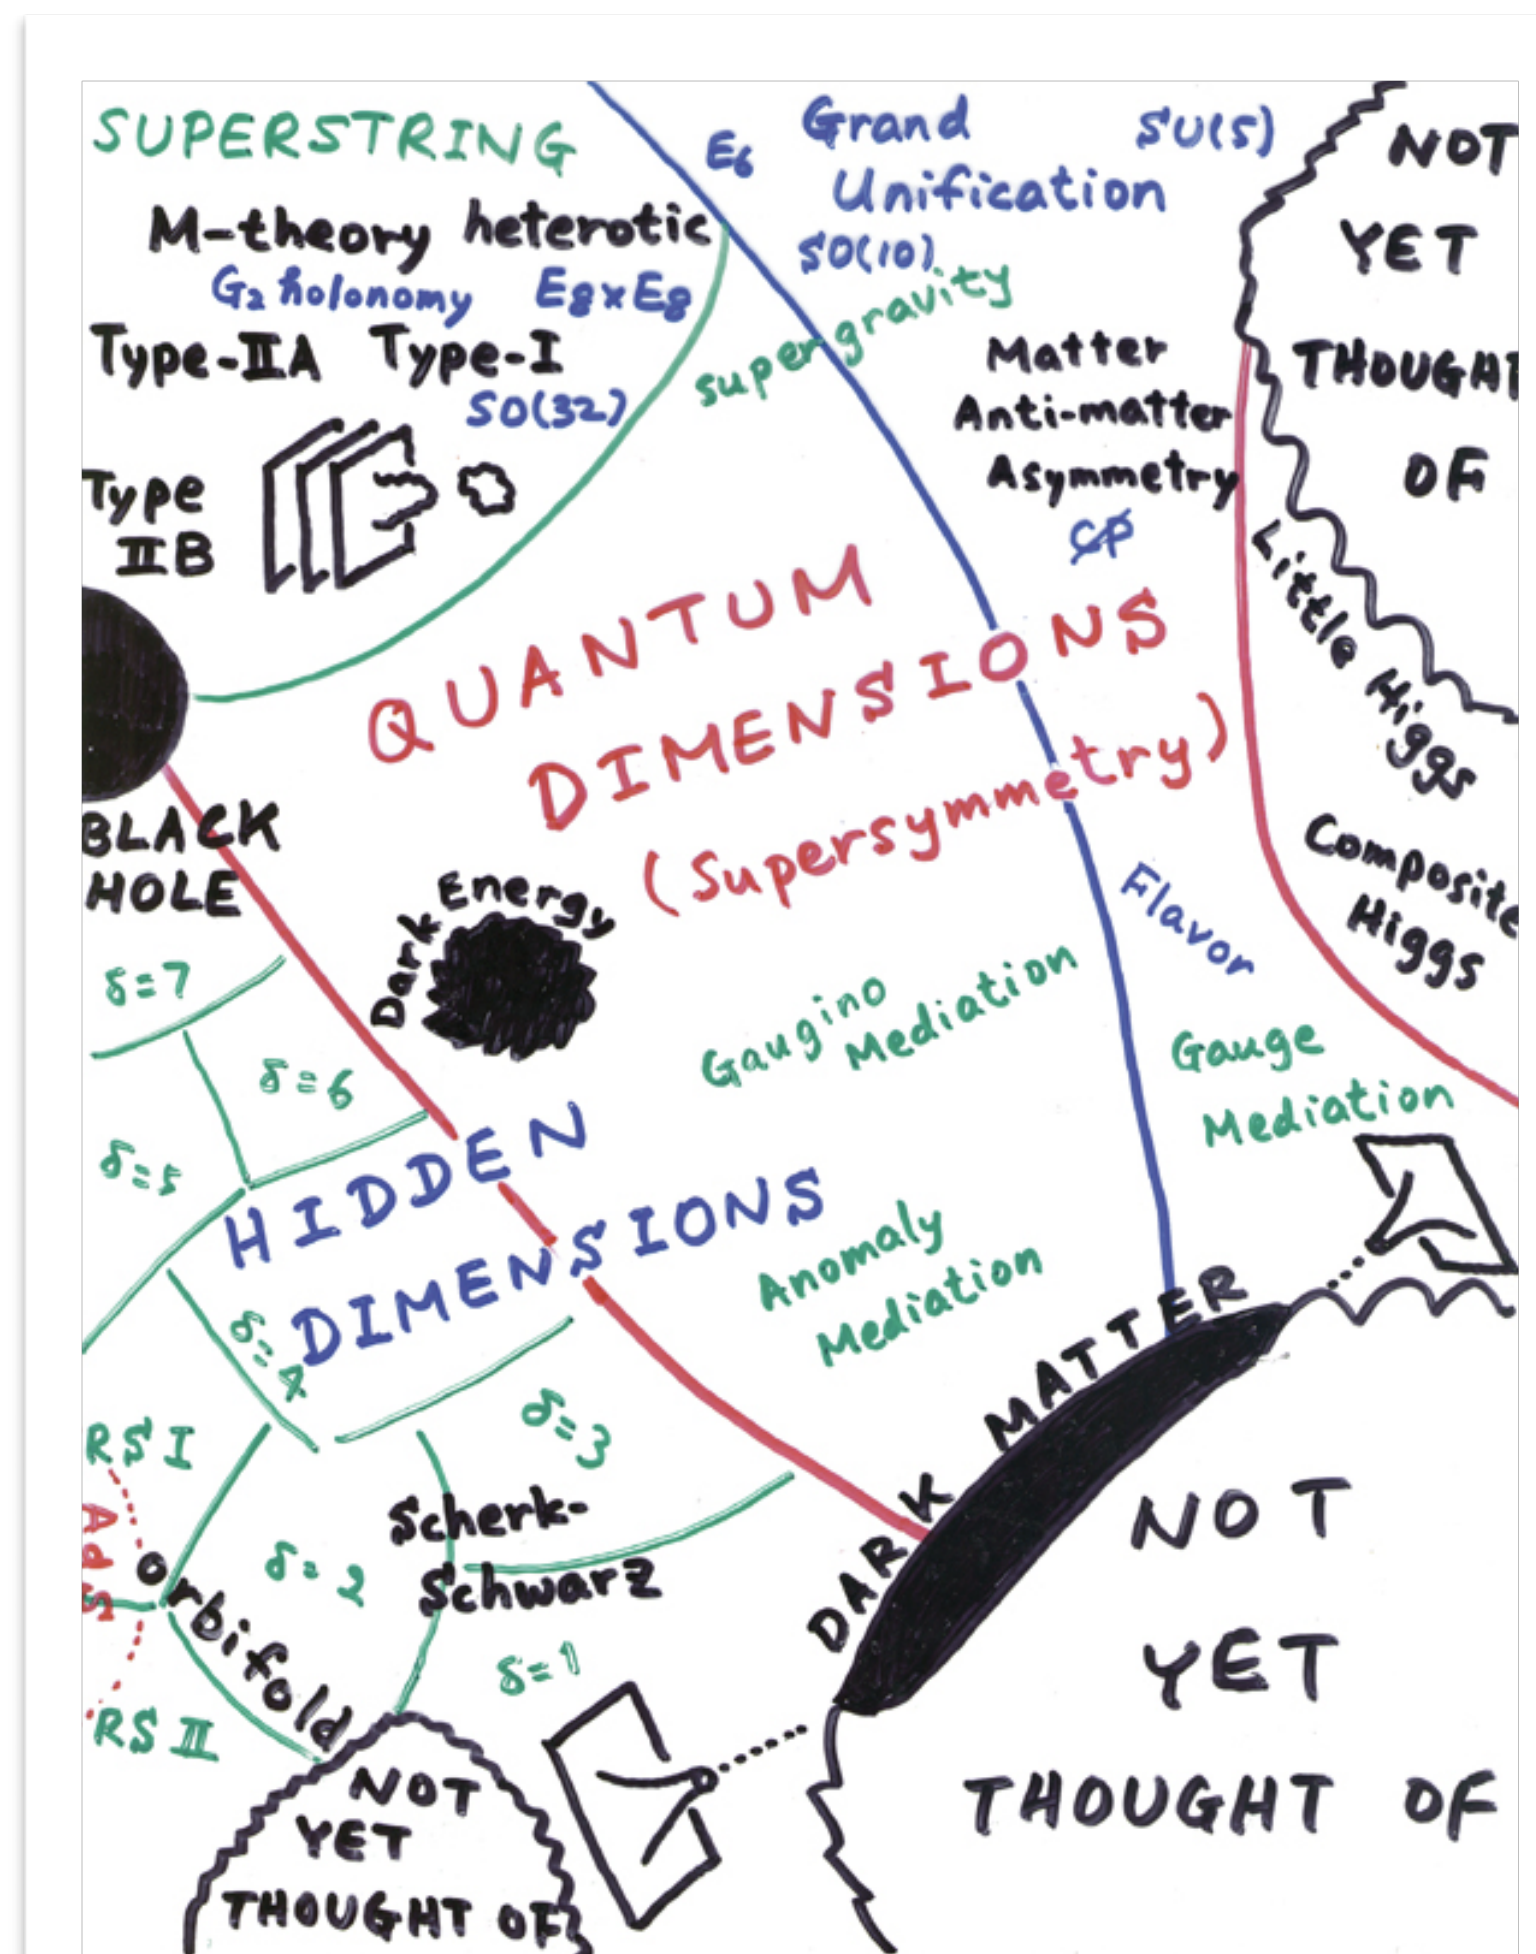 SUPERSTRING
M-theory heterotic
G₂ holonomy E₈×E₈
Type-ⅡA Type-I
SO(32)
Type
ⅡB
E₆
Grand
Unification
SU(5)
SO(10)
super gravity
Matter
Anti-matter
Asymmetry
CP
NOT
YET
THOUGHT
OF
Little Higgs
Composite
Higgs
QUANTUM
DIMENSIONS
(Supersymmetry)
BLACK
HOLE
Dark Energy
Flavor
Gaugino
Mediation
Gauge
Mediation
Anomaly
Mediation
δ=7
δ=6
δ=5
HIDDEN
DIMENSIONS
δ=4
δ=3
RS I
AdS
Orbifold
δ=2
Scherk-
Schwarz
δ=1
RS Ⅱ
DARK MATTER
NOT
YET
THOUGHT OF
NOT
YET
THOUGHT OF